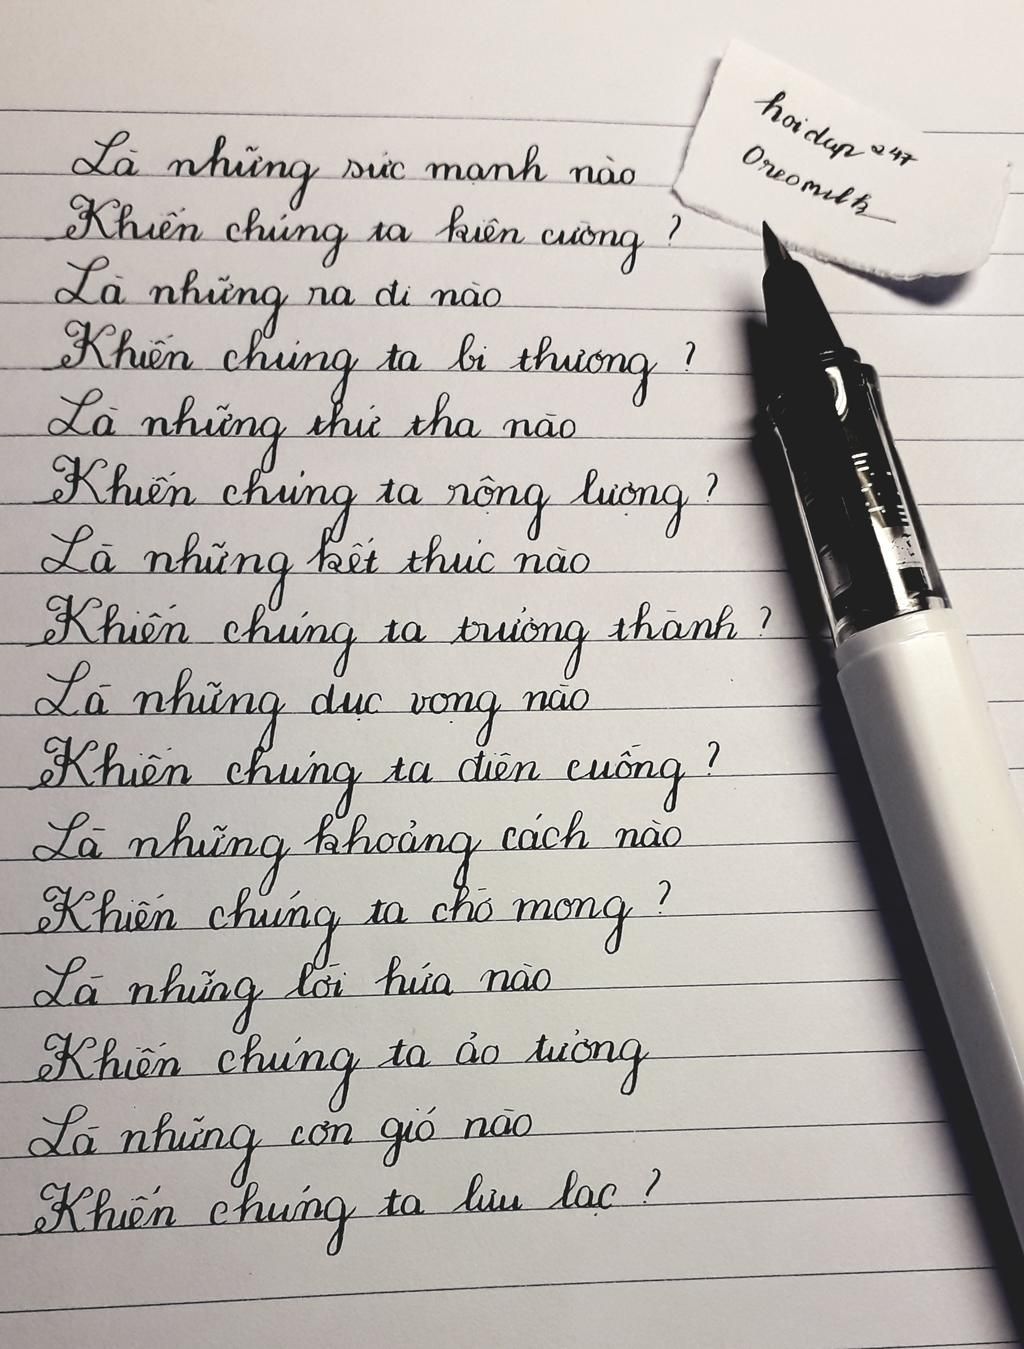 hoidap 247
Oreomilk
Là những sức mạnh nào
Khiến chúng ta kiên cường ?
Là những ra đi nào
Khiến chúng ta bi thương ?
Là những thứ tha nào
Khiến chúng ta rộng lượng ?
Là những kết thúc nào
Khiến chúng ta trưởng thành ?
Là những dục vọng nào
Khiến chúng ta điên cuồng ?
Là những khoảng cách nào
Khiến chúng ta chờ mong ?
Là những lời hứa nào
Khiến chúng ta ảo tưởng
Là những cơn gió nào
Khiến chúng ta lưu lạc ?